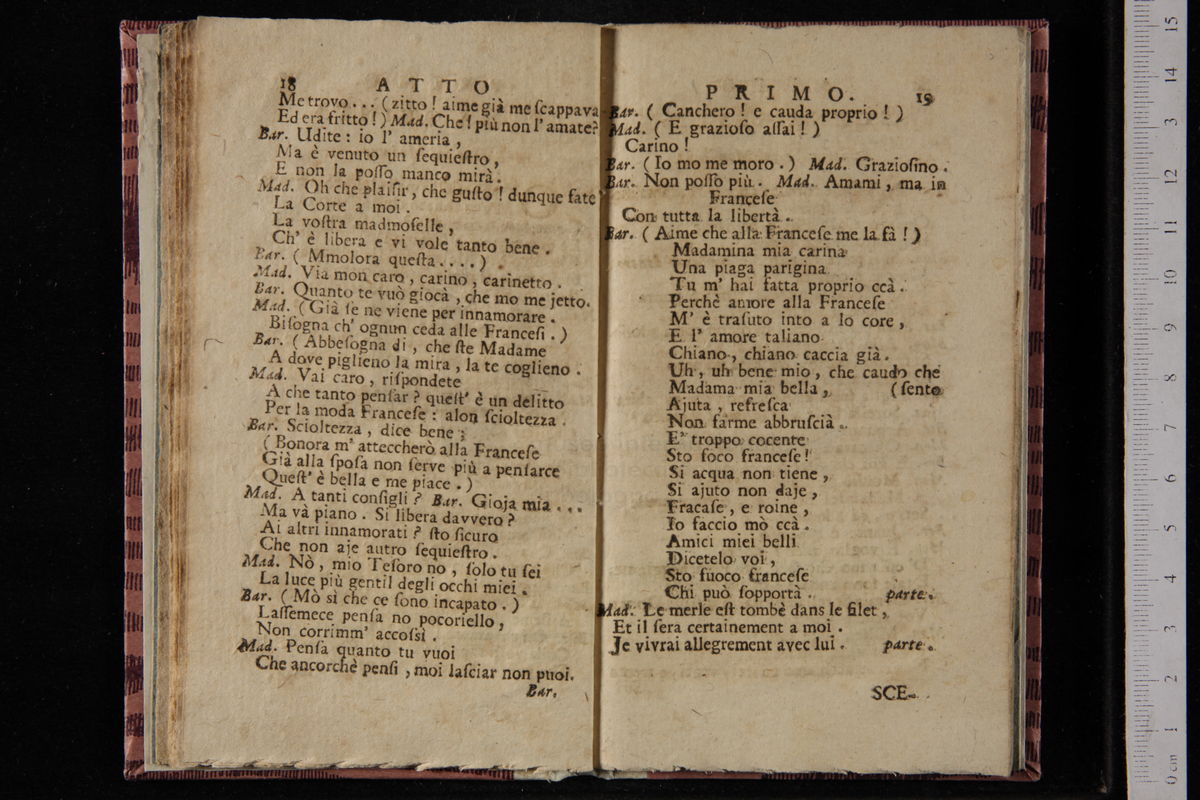 18 ATTO
Me trovo... (zitto! aime già me ſcappava
Ed era fritto!) Mad. Che! più non l'amate?
Bar. Udite: io l'ameria,
Ma è venuto un ſequieſtro,
E non la poſſo manco mirà.
Mad. Oh che plaiſir, che guſto! dunque fate
La Corte a moi.
La voſtra madmoſelle,
Ch'è libera e vi vole tanto bene.
Bar. (Mmolora queſta....)
Mad. Via mon caro, carino, carinetto.
Bar. Quanto te vuò giocà, che mo me jetto.
Mad. (Già ſe ne viene per innamorare.
Biſogna ch'ognun ceda alle Franceſi.)
Bar. (Abbeſogna di, che ſte Madame
A dove piglieno la mira, la te coglieno.
Mad. Vai caro, riſpondete
A che tanto penſar? queſt'è un delitto
Per la moda Franceſe: alon ſcioltezza.
Bar. Scioltezza, dice bene;
(Bonora m'atteccherò alla Franceſe
Già alla ſpoſa non ſerve più a penſarce
Queſt'è bella e me piace.)
Mad. A tanti conſigli? Bar. Gioja mia...
Ma và piano. Si libera davvero?
Ai altri innamorati? ſto ſicuro
Che non aje autro ſequieſtro.
Mad. Nò, mio Teſoro no, ſolo tu ſei
La luce più gentil degli occhi miei.
Bar. (Mò sì che ce ſono incapato.)
Laſſemece penſa no pocoriello,
Non corrimm'accoſsì.
Mad. Penſa quanto tu vuoi
Che ancorchè penſi, moi laſciar non puoi.
Bar.
PRIMO. 19
Bar. (Canchero! e cauda proprio!)
Mad. (E grazioſo aſſai!)
Carino!
Bar. (Io mo me moro.) Mad. Grazioſino.
Bar. Non poſſo più. Mad. Amami, ma in
Franceſe
Con tutta la libertà.
Bar. (Aime che alla Franceſe me la fà!)
Madamina mia carina
Una piaga parigina
Tu m'hai fatta proprio ccà.
Perchè amore alla Franceſe
M'è traſuto into a lo core,
E l'amore taliano
Chiano, chiano caccia già.
Uh, uh bene mio, che caudo che
Madama mia bella, (ſento
Ajuta, refreſca
Non farme abbruſcià.
E' troppo cocente
Sto foco franceſe!
Si acqua non tiene,
Si ajuto non daje,
Fracaſe, e roine,
Io faccio mò ccà.
Amici miei belli
Dicetelo voi,
Sto fuoco franceſe
Chi può ſopportà. parte.
Mad. Le merle eſt tombè dans le filet,
Et il ſera certainement a moi.
Je vivrai allegrement avec lui. parte.
SCE-